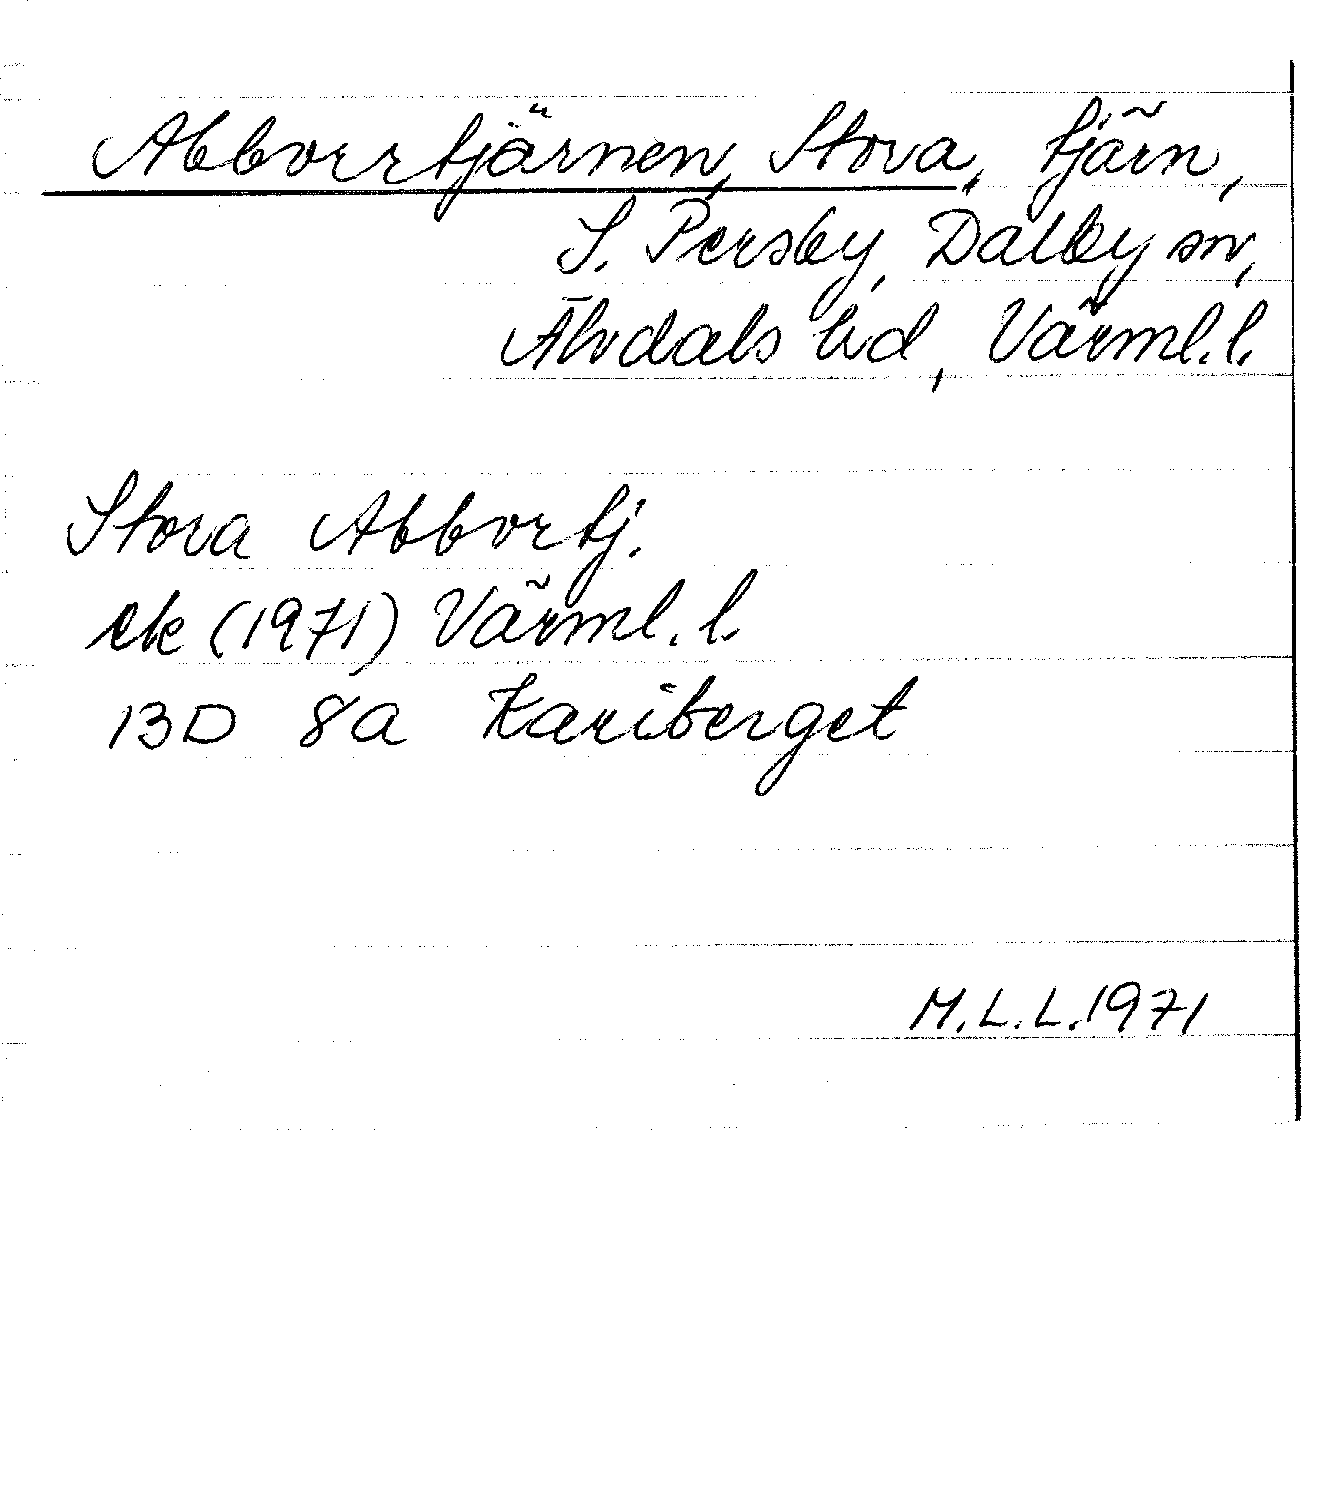 Abborrtjärnen, Stora, tjärn,
S. Persby, Dalby sn,
Älvdals hd, Värml. l.
Stora Abborrtj.
ek (1971) Värml. l.
13D 8a Kariberget
M.L.L. 1971